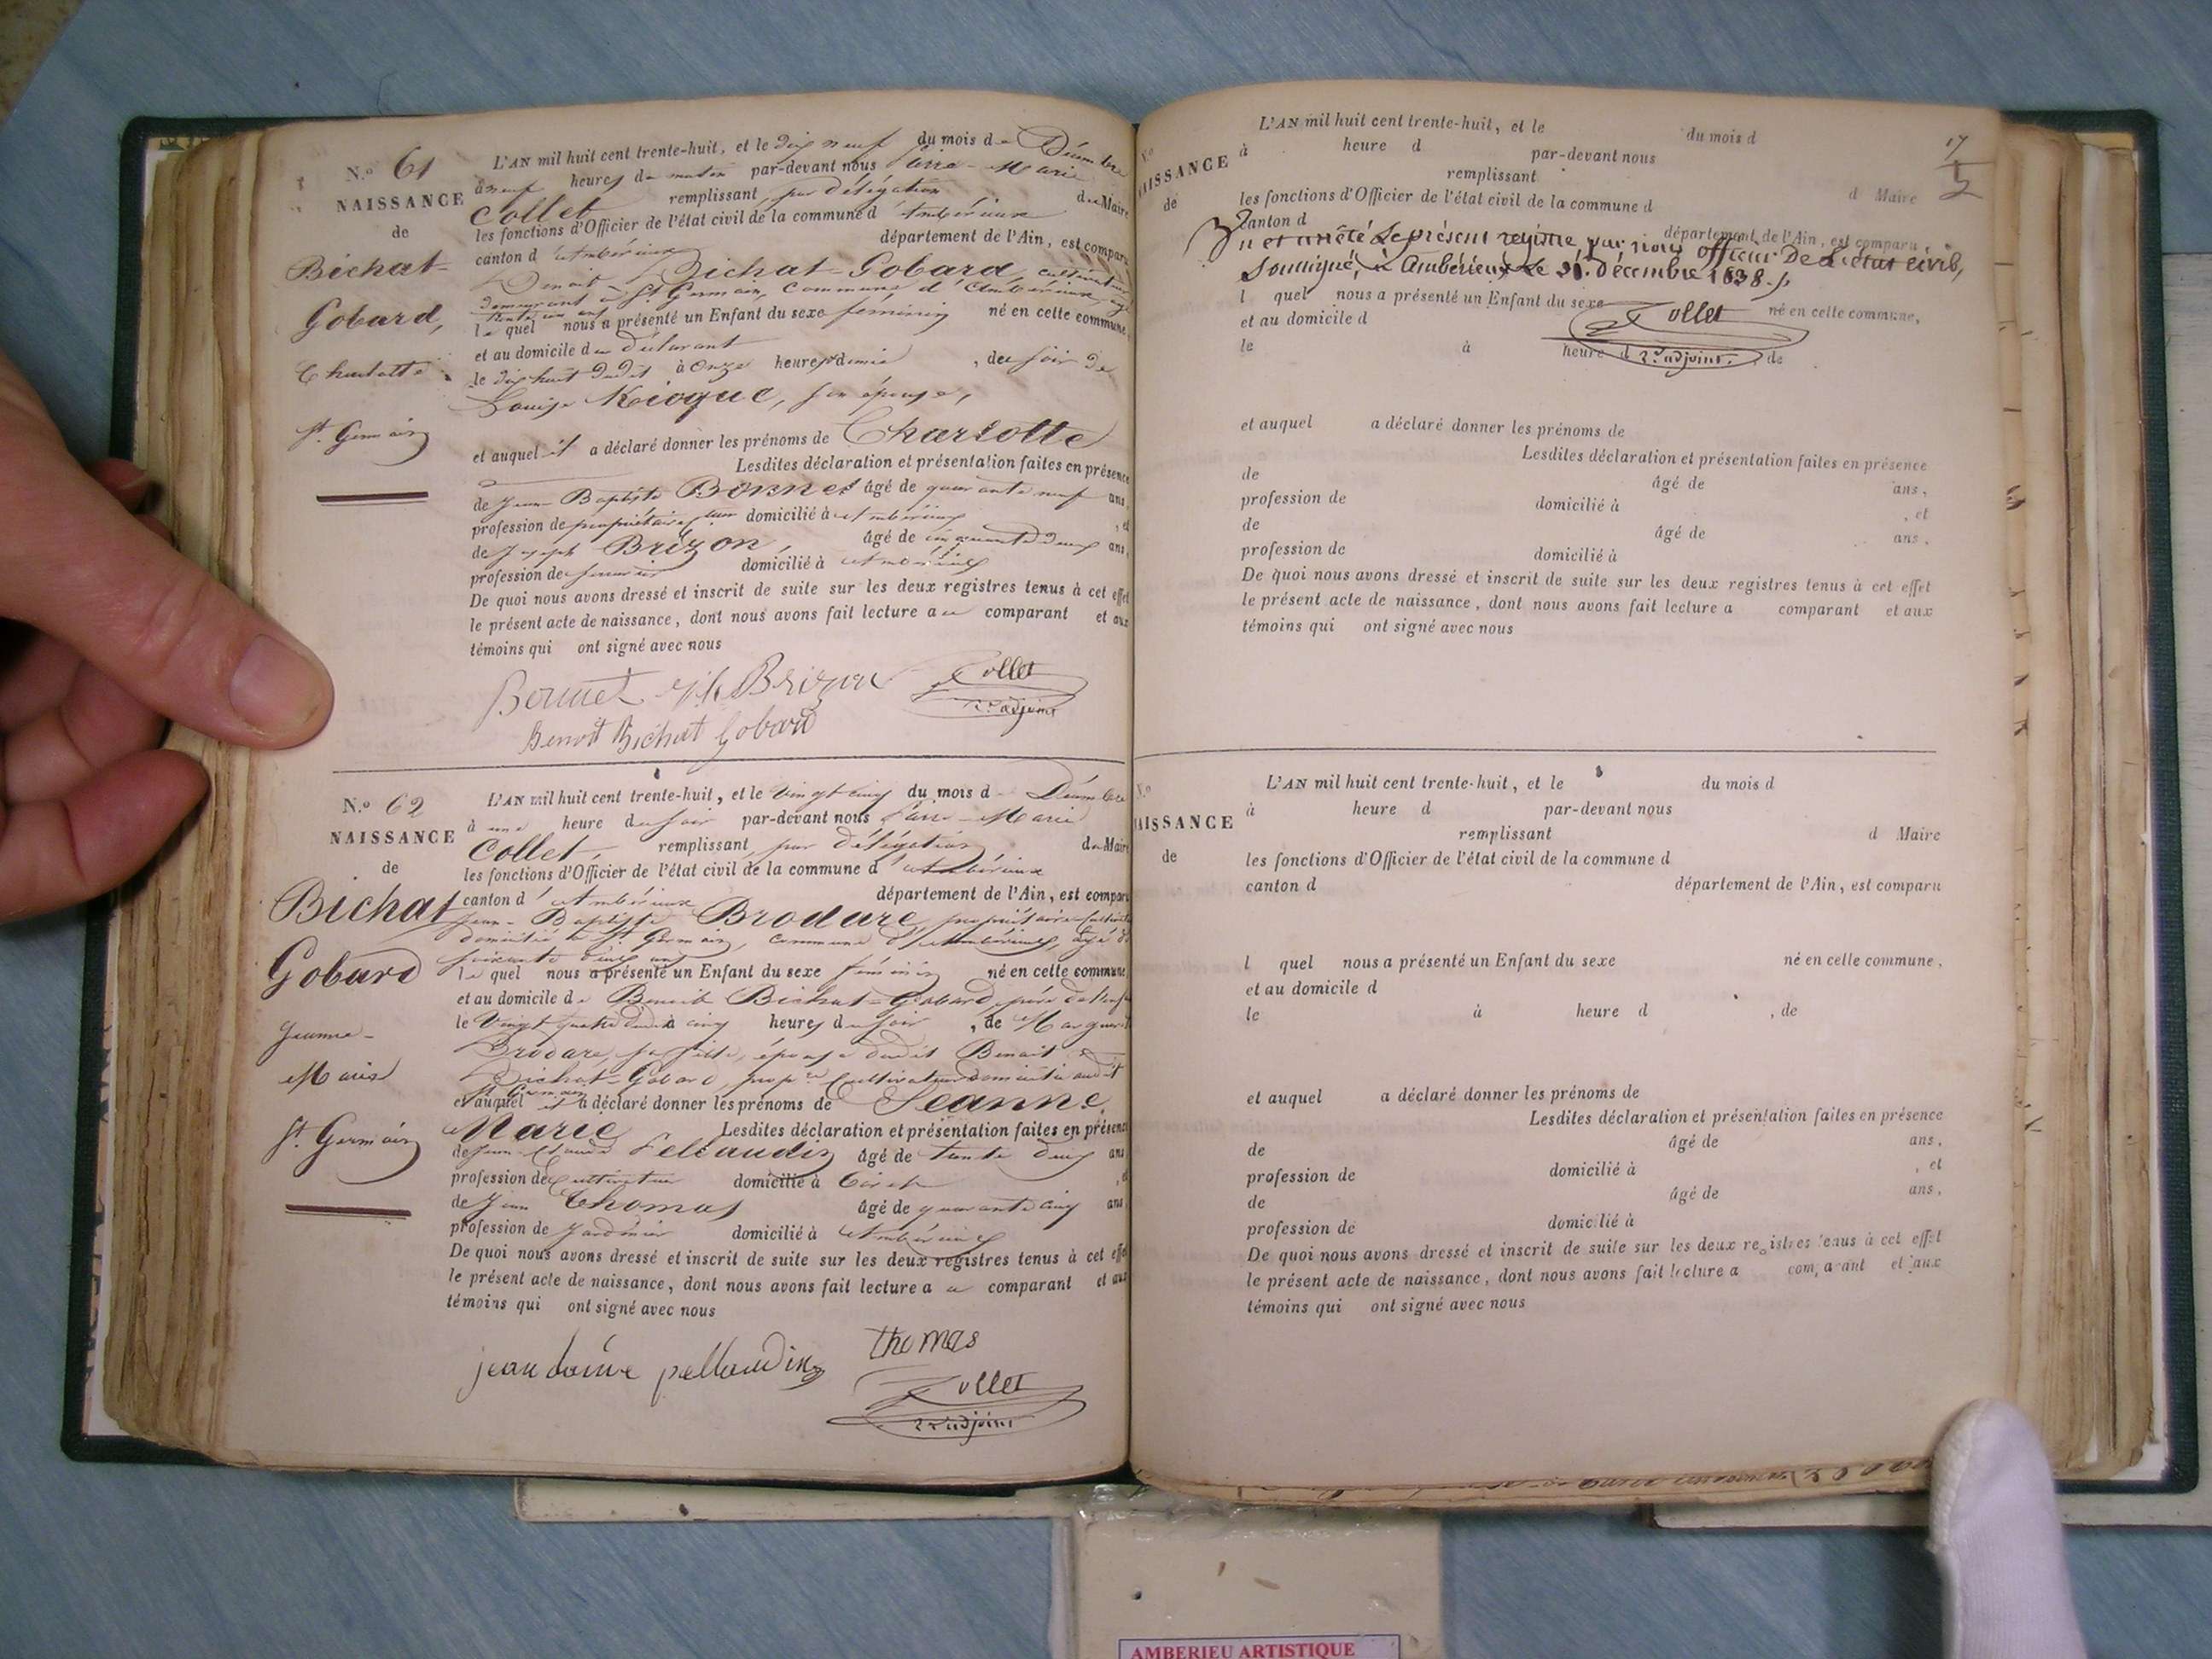 N.º 61
NAISSANCE
de
Bichat-
Gobard,
Charlotte
St. Germain
L'AN mil huit cent trente-huit, et le dix neuf du mois de Décembre
à neuf heures du matin par-devant nous Pierre-Marie
Collet remplissant, par délégation du Maire
les fonctions d'Officier de l'état civil de la commune d'Ambérieux
canton d'Ambérieux département de l'Ain, est comparu
Benoit Bichat-Gobard, cultivateur
demeurant à St. Germain, commune d'Ambérieux, agé
trente un ans
le quel nous a présenté un Enfant du sexe féminin né en cette commune,
et au domicile du déclarant
le dix huit dudit à Onze heures & demie, du soir de
Louise son épouse,
et auquel il a déclaré donner les prénoms de Charlotte
Lesdites déclaration et présentation faites en présence
de Jean Baptiste Bonnet âgé de quarante neuf ans,
profession de propriétaire domicilié à Ambérieux, et
de Joseph Brizon, âgé de cinquante deux ans,
profession de domicilié à Ambérieux
De quoi nous avons dressé et inscrit de suite sur les deux registres tenus à cet effet
le présent acte de naissance, dont nous avons fait lecture au comparant et aux
témoins qui ont signé avec nous
Bonnet Jh Brizon Collet
2e adjoint
Benoit Bichat Gobard
N.º 62
NAISSANCE
de
Bichat
Gobard
Jeanne-
Marie
St. Germain
L'AN mil huit cent trente-huit, et le vingt cinq du mois d Décembre
à une heure du soir par-devant nous Pierre-Marie
Collet, remplissant, par délégation du Maire
les fonctions d'Officier de l'état civil de la commune d'Ambérieux
canton d'Ambérieux département de l'Ain, est comparu
Jean-Baptiste Brodare, propriétaire cultivateur
domicilié à St. Germain, commune d'Ambérieux, âgé de
soixante deux ans
le quel nous a présenté un Enfant du sexe féminin né en cette commune,
et au domicile de Benoit Bichat-Gobard, père de l'enfant
le Vingt quatre dudit à cinq heures du soir, de Marguerite
Brodare, sa fille, épouse dudit Benoit
Bichat-Gobard, propre. Cultivateur domicilié audit
St. Germain
et auquel il a déclaré donner les prénoms de Jeanne
Marie Lesdites déclaration et présentation faites en présence
de Jean-Claude Pellaudin âgé de trente deux ans
profession de Cultivateur domicilié à
de Jean Thomas âgé de quarante cinq ans
profession de Jardinier domicilié à Ambérieux
De quoi nous avons dressé et inscrit de suite sur les deux registres tenus à cet effet
le présent acte de naissance, dont nous avons fait lecture a u comparant et aux
témoins qui ont signé avec nous
pellaudin thomas
Collet
2e adjoint
17
N.º
NAISSANCE
de
L'AN mil huit cent trente-huit, et le du mois d
à heure d par-devant nous
remplissant d Maire
les fonctions d'Officier de l'état civil de la commune d
canton d département de l'Ain, est comparu,
et arrêté le présent registre, par nous officier De L'état civil,
Soussigné, à Ambérieux le 31. décembre 1838.
l quel nous a présenté un Enfant du sexe né en cette commune,
et au domicile d
Collet
le à heure d, de
2e adjoint.
et auquel a déclaré donner les prénoms de
Lesdites déclaration et présentation faites en présence
de âgé de ans,
profession de domicilié à, et
de âgé de ans,
profession de domicilié à
De quoi nous avons dressé et inscrit de suite sur les deux registres tenus à cet effet
le présent acte de naissance, dont nous avons fait lecture a comparant et aux
témoins qui ont signé avec nous
N.º
NAISSANCE
de
L'AN mil huit cent trente-huit, et le du mois d
à heure d par-devant nous
remplissant d Maire
les fonctions d'Officier de l'état civil de la commune d
canton d département de l'Ain, est comparu
l quel nous a présenté un Enfant du sexe né en cette commune,
et au domicile d
le à heure d, de
et auquel a déclaré donner les prénoms de
Lesdites déclaration et présentation faites en présence
de âgé de ans,
profession de domicilié à, et
de âgé de ans,
profession de domicilié à
De quoi nous avons dressé et inscrit de suite sur les deux registres tenus à cet effet
le présent acte de naissance, dont nous avons fait lecture a comparant et aux
témoins qui ont signé avec nous
AMBERIEU ARTISTIQUE